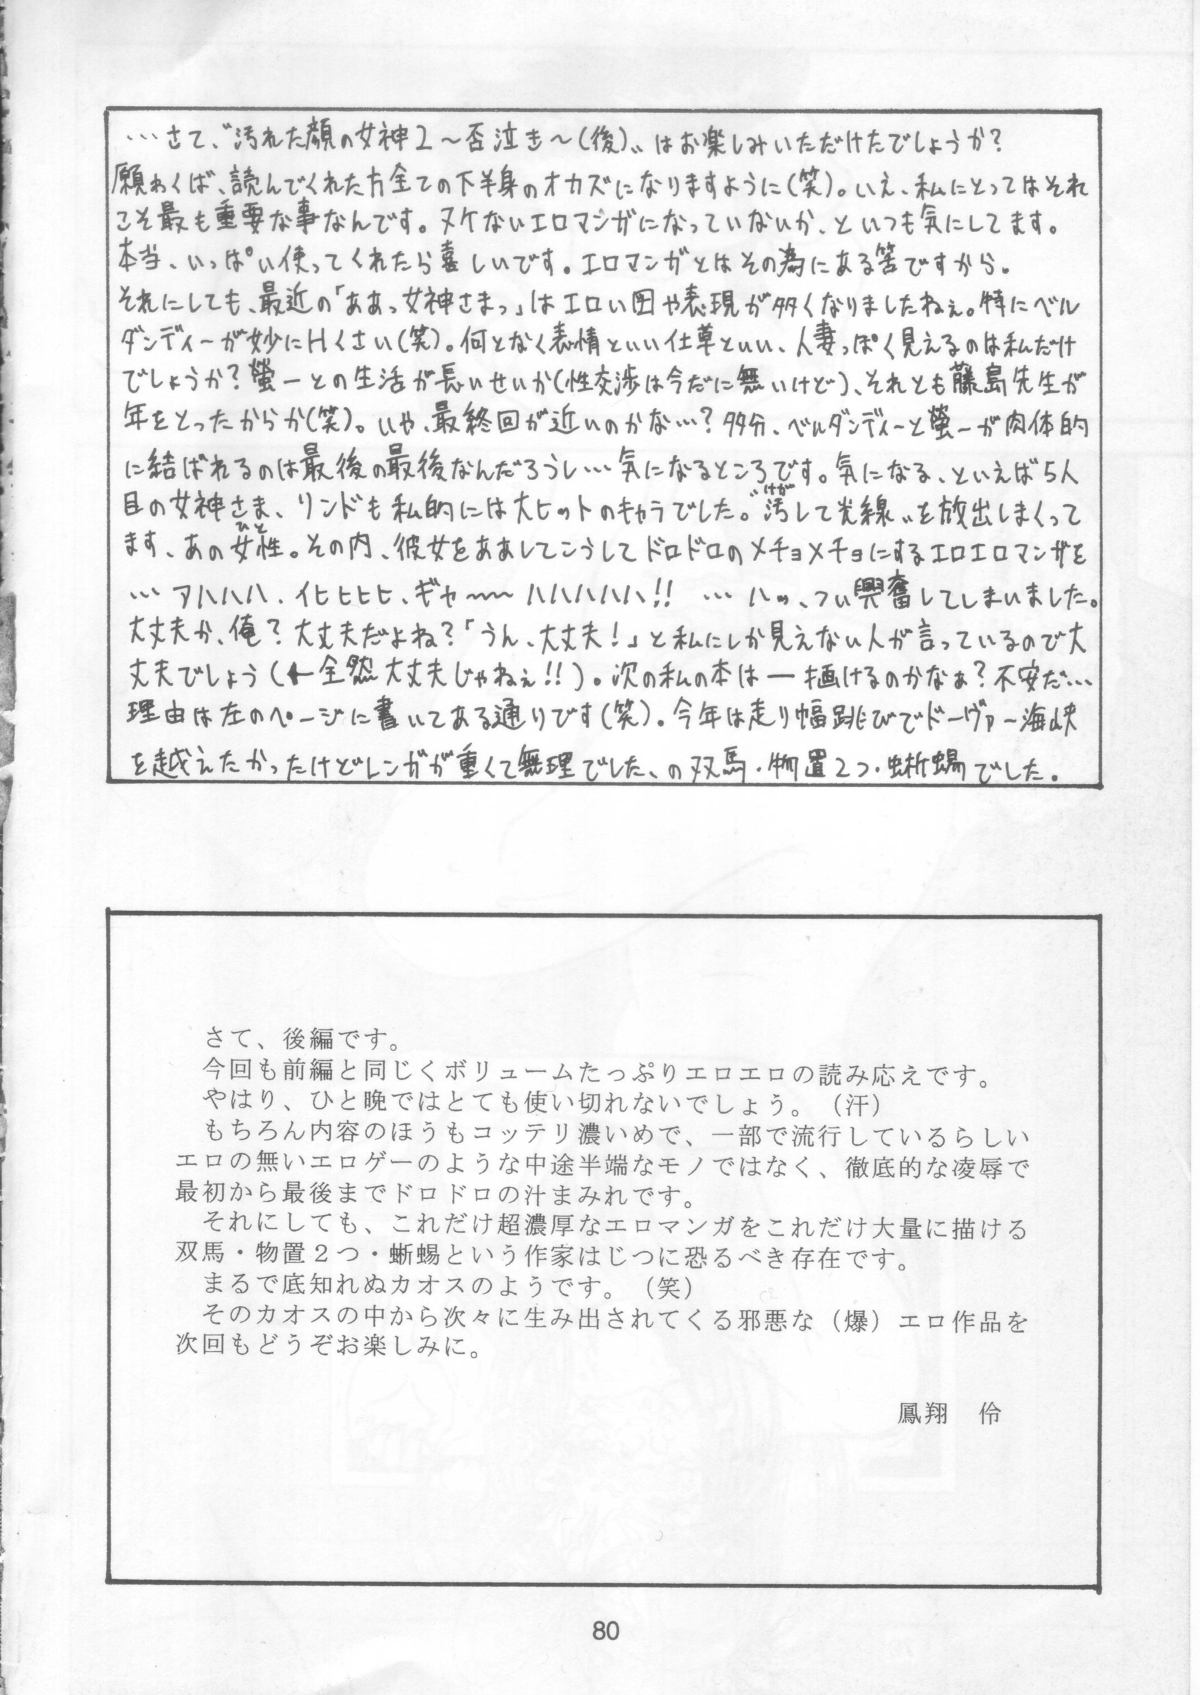 …さて、〝汚れた顔の女神2～否泣き～(後)〟はお楽しみいただけたでしょうか？
願わくば、読んでくれた方全ての下半身のオカズになりますように(笑)。いえ、私にとってはそれ
こそ最も重要な事なんです。ヌケないエロマンガになっていないか、といつも気にしてます。
本当、いっぱい使ってくれたら喜しいです。エロマンガとはその為にある筈ですから。
それにしても、最近の「ああっ女神さまっ」はエロい図や表現が多くなりましたねぇ。特にベル
ダンディーが妙にHくさい(笑)。何となく表情といい仕草といい、人妻っぽく見えるのは私だけ
でしょうか？螢一との生活が長いせいか(性交渉は今だに無いけど)、それとも藤島先生が
年をとったからか(笑)。いや、最終回が近いのかな…？多分、ベルダンディーと螢一が肉体的
に結ばれるのは最後の最後なんだろうし…気になるところです。気になる、といえば5人
目の女神さま、リンドも私的には大ヒットのキャラでした。〝汚(けが)して光線〟を放出しまくって
ます、あの女性(ひと)。その内、彼女をああしてこうしてドロドロのメチョメチョにするエロエロマンガを
…アハハハ、イヒヒヒヒ、ギャ～～ハハハハハ!! …ハッ、つい興奮してしまいました。
大丈夫か、俺？大丈夫だよね？「うん、大丈夫！」と私にしか見えない人が言っているので大
丈夫でしょう(←全然大丈夫じゃねぇ!!)。次の私の本は一描けるのかなぁ？不安だ…
理由は左のページに書いてある通りです(笑)。今年は走り幅跳びでドーヴァー海峡
を越えたかったけどレンガが重くて無理でした、の双馬・物置2つ・蜥蜴でした。
さて、後編です。
今回も前編と同じくボリュームたっぷりエロエロの読み応えです。
やはり、ひと晩ではとても使い切れないでしょう。（汗）
もちろん内容のほうもコッテリ濃いめで、一部で流行しているらしい
エロの無いエロゲーのような中途半端なモノではなく、徹底的な凌辱で
最初から最後までドロドロの汁まみれです。
それにしても、これだけ超濃厚なエロマンガをこれだけ大量に描ける
双馬・物置２つ・蜥蜴という作家はじつに恐るべき存在です。
まるで底知れぬカオスのようです。（笑）
そのカオスの中から次々に生み出されてくる邪悪な（爆）エロ作品を
次回もどうぞお楽しみに。
鳳翔　伶
80